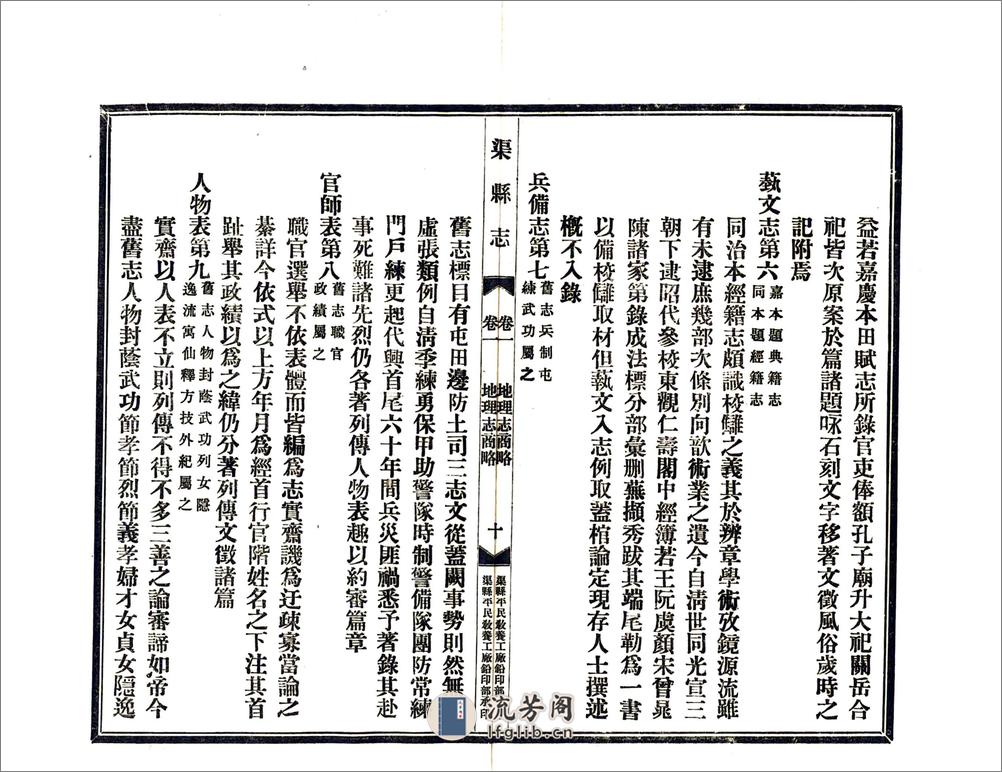 益若嘉慶本田賦志所錄官吏俸額孔子廟升大祀關岳合
祀皆次原案於篇諸題咏石刻文字移著文徵風俗歲時之
記附焉
藝文志第六
嘉本題典籍志
同本題經籍志
同治本經籍志頗識校讎之義其於辨章學術攷鏡源流雖
有未逮庶幾部次條別向歆術業之遺今自清世同光宣三
朝下逮昭代參校東觀仁壽閣中經簿若王阮虞顏宋曾晁
陳諸家第錄成法標分部彙刪蕪擷秀跋其端尾勒爲一書
以備校讎取材但藝文入志例取蓋棺論定現存人士撰述
槪不入錄
兵備志第七
舊志兵制屯
練武功屬之
渠縣志
卷一
地理志商略
卷一
地理志商略
十
渠縣平民敎養工廠鉛印部承印
渠縣平民敎養工廠鉛印部承印
舊志標目有屯田邊防土司三志文從蓋闕事勢則然無事
虛張類例自清季練勇保甲助警隊時制警備隊團防常練
門戶練更起代興首尾六十年間兵災匪禍悉予著錄其赴
事死難諸先烈仍各著列傳人物表趣以約審篇章
官師表第八
舊志職官
政績屬之
職官選舉不依表體而皆編爲志實齋譏爲迂疎寡當論之
綦詳今依式以上方年月爲經首行官階姓名之下注其首
趾舉其政績以爲之緯仍分著列傳文徵諸篇
人物表第九
舊志人物封蔭武功列女隱
逸流寓仙釋方技外紀屬之
實齋以人表不立則列傳不得不多三善之論審諦如帝今
盡舊志人物封蔭武功節孝節烈節義孝婦才女貞女隱逸
流芳阁
lfglib.cn